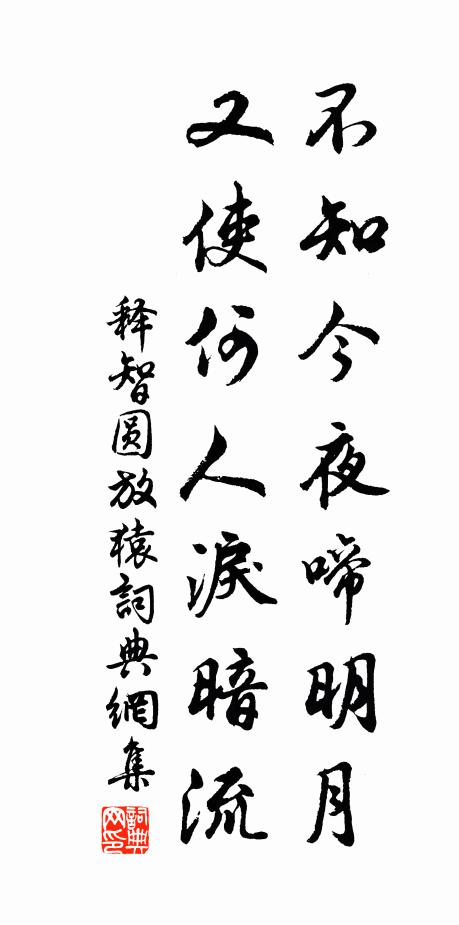 不知今夜啼明月
又使何人淚暗流
释智圆放猿詞典網集
詞典网印